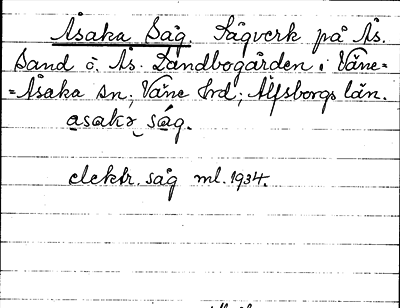 Åsaka Såg. Sågverk på Ås.
Sand o. Ås. Landbogården i Väne-
=Åsaka sn; Väne hrd; Älfsborgs län.
asakɤ såg.
elektr. såg ml. 1934.